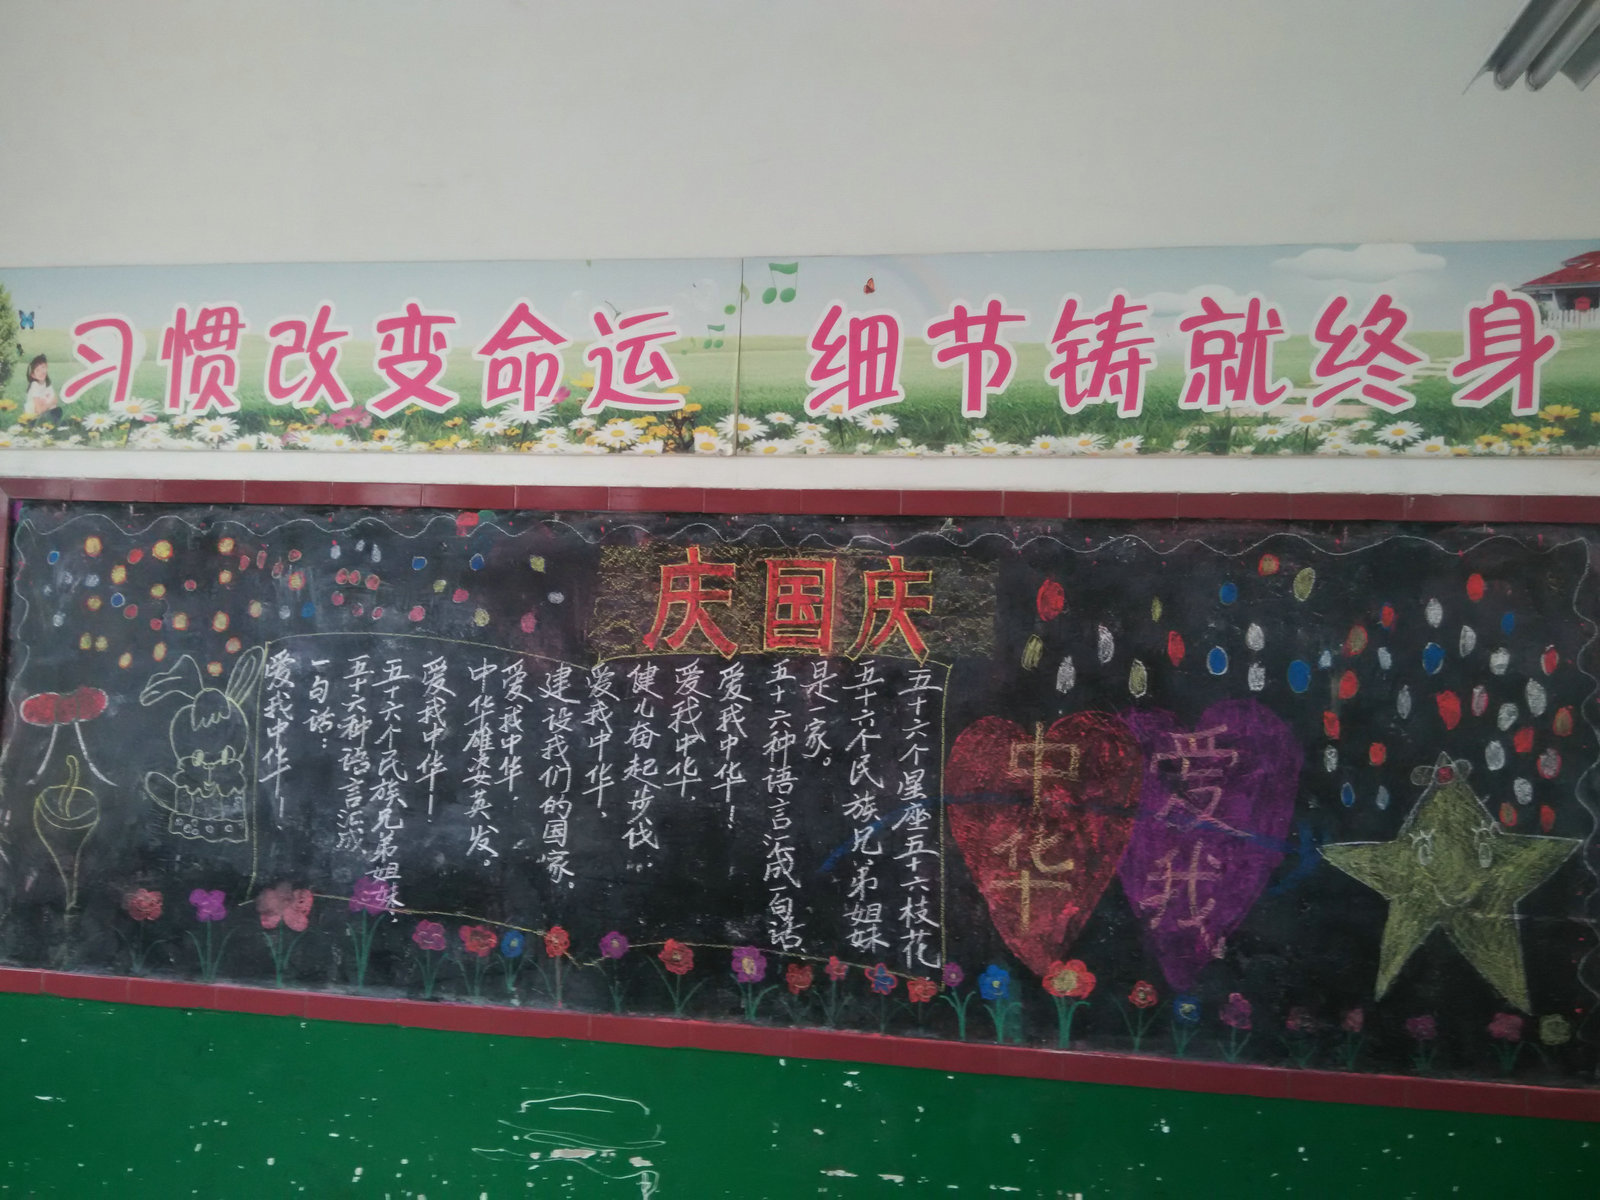 习惯改变命运 细节铸就终身
庆国庆
五十六个星座五十六枝花
五十六个民族兄弟姐妹
是一家。
五十六种语言汇成一句话、
爱我中华！
爱我中华、
健儿奋起步伐：
爱我中华、
建设我们的国家。
爱我中华、
中华雄姿英发。
爱我中华！
五十六个民族兄弟姐妹：
五十六种语言汇成
一句话：
爱我中华！
爱我
中华